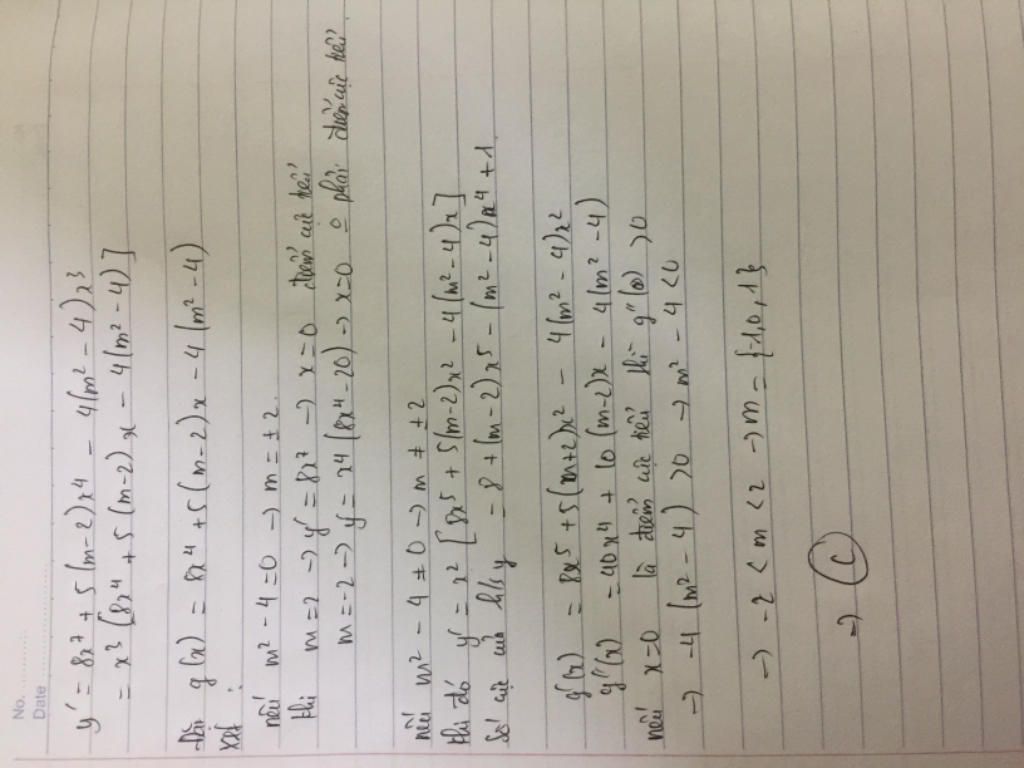 No. ........................
Date ........................
y' = 8x⁷ + 5(m-2)x⁴ - 4(m²-4)x³
= x³[8x⁴ + 5(m-2)x - 4(m²-4)]
g(x) = 8x⁴ + 5(m-2)x - 4(m²-4)
Xét :
nếu m² - 4 = 0 → m = ±2.
thì m=2 → y' = 8x⁷ → x=0 điểm cực tiểu
m=-2 → y' = x⁴(8x⁴-20) → x=0 o phải điểm cực tiểu
nếu m² - 4 ≠ 0 → m ≠ ±2
thì đó y' = x²[8x⁵ + 5(m-2)x² - 4(m²-4)x]
Số cực của h/s y = 8 + (m-2)x⁵ - (m²-4)x⁴ + 1
g'(x) = 8x⁵ + 5(m+2)x² - 4(m²-4)x²
g''(x) = 40x⁴ + 10(m-2)x - 4(m²-4)
nếu x=0 là điểm cực tiểu thì g''(0) >0
→ -4(m²-4) >0 → m² - 4 <0
→ -2 < m < 2 → m = {-1,0,1}
=> C